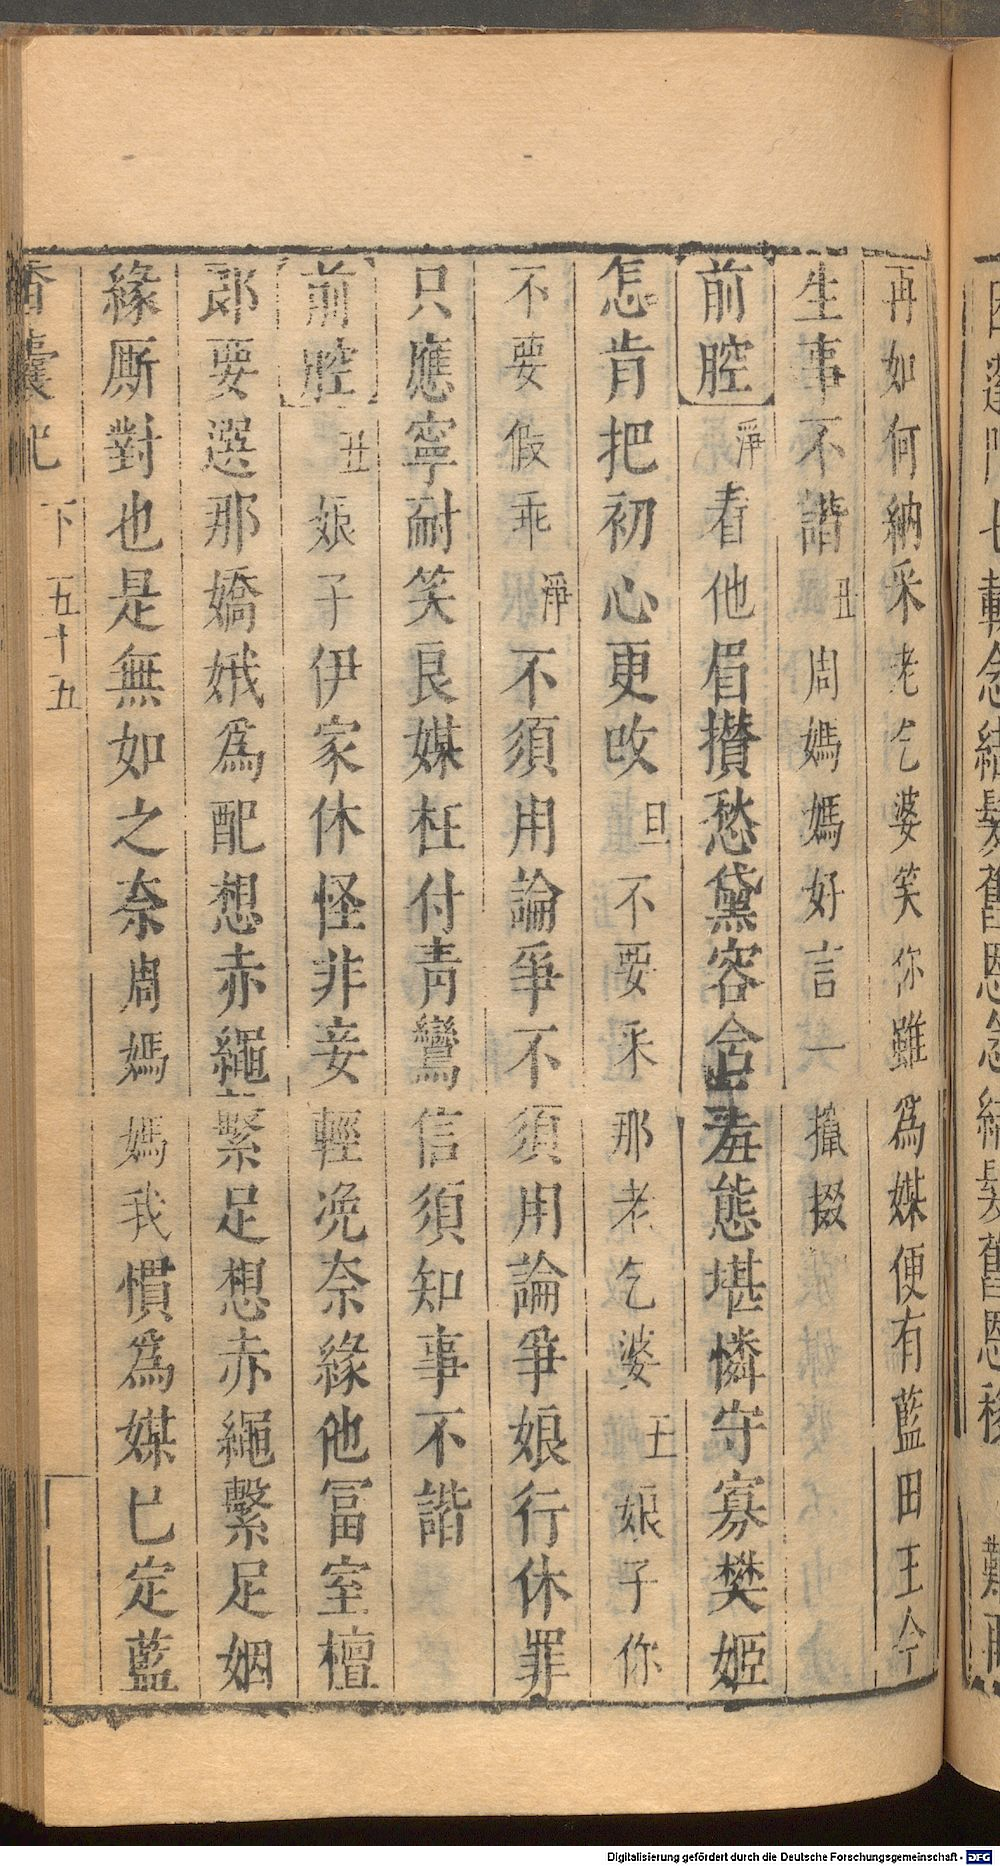 再如何納采老乞婆笑你雖爲媒便有藍田王今
生事不諧丑周媽媽好言一攛掇
前腔淨看他眉攢愁黛容含羞態堪憐守寡樊姬
怎肯把初心更改旦不要采那老乞婆丑娘子你
不要假乖淨不須用論爭不須用論爭娘行休罪
只應寧耐笑良媒枉付靑鸞信須知事不諧
前腔丑娘子伊家休怪非妾輕浼奈緣他冨室檀
郎要選那嬌娥爲配想赤繩繫足想赤繩繫足姻
緣厮對也是無如之奈周媽媽我慣爲媒已定藍
香囊記 下 五十五
Digitalisierung gefördert durch die Deutsche Forschungsgemeinschaft - DFG